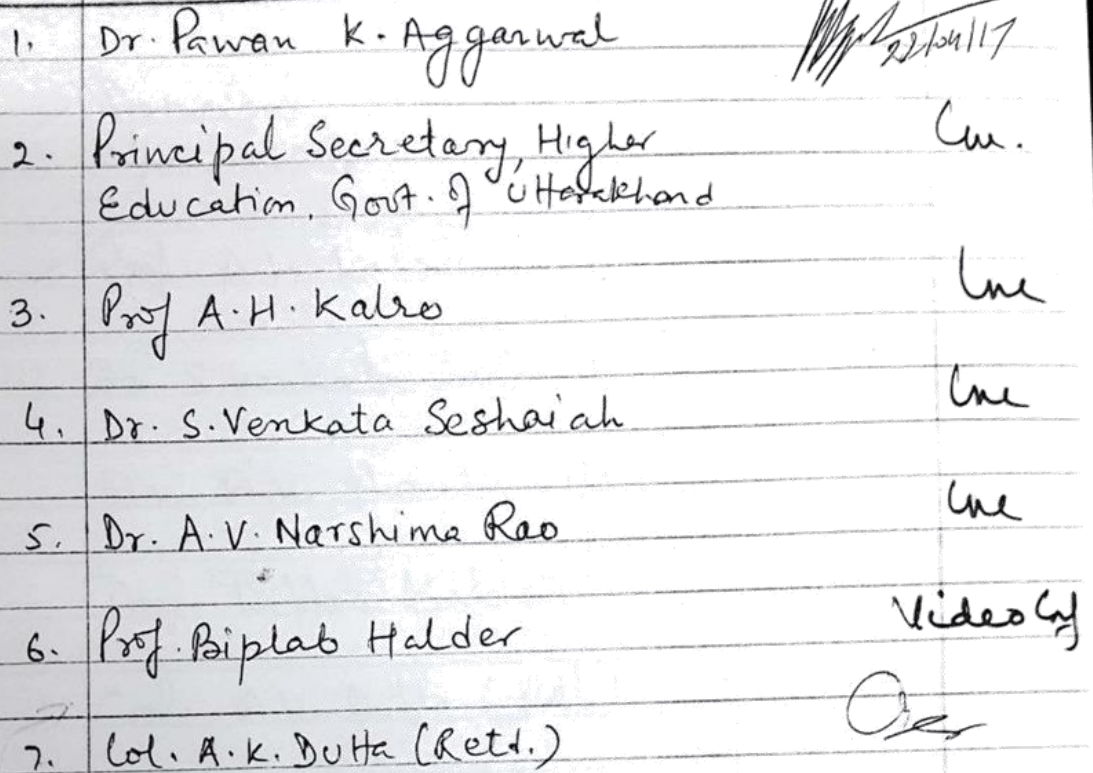 1. Dr. Pawan K. Aggarwal 22/04/17
2. Principal Secretary, Higher
Education, Govt. of Uttarakhand
3. Prof A.H. Kalro
4. Dr. S. Venkata Seshaiah
5. Dr. A.V. Narshima Rao
6. Prof. Biplab Halder Video
7. Col. A.K. Dutta (Retd.)